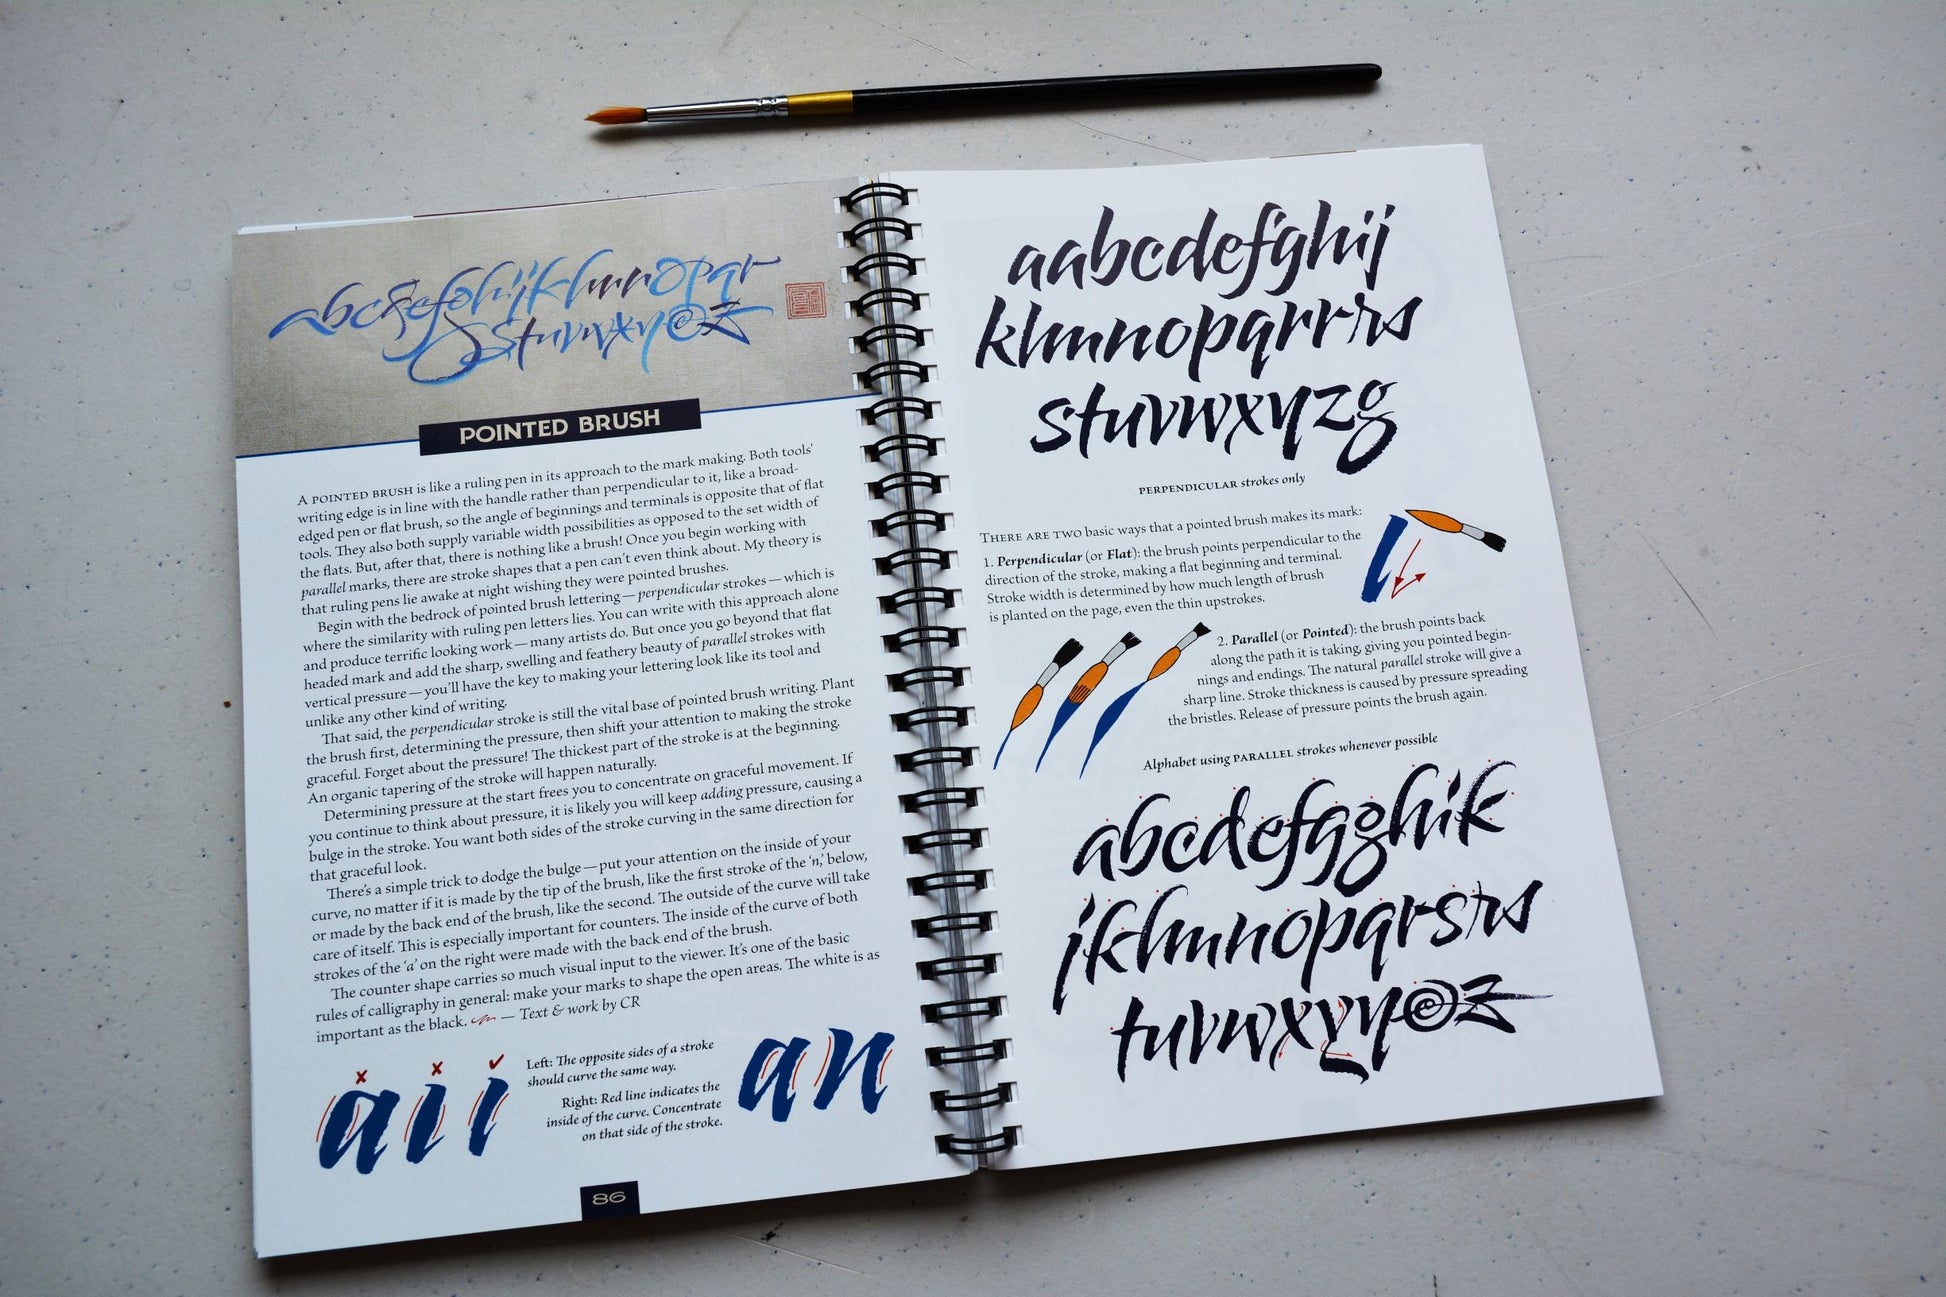 abcdefghijklmnopqr
stuvwxy@z
POINTED BRUSH
A POINTED BRUSH is like a ruling pen in its approach to the mark making. Both tools'
writing edge is in line with the handle rather than perpendicular to it, like a broad-
edged pen or flat brush, so the angle of beginnings and terminals is opposite that of flat
tools. They also both supply variable width possibilities as opposed to the set width of
the flats. But, after that, there is nothing like a brush! Once you begin working with
parallel marks, there are stroke shapes that a pen can't even think about. My theory is
that ruling pens lie awake at night wishing they were pointed brushes.
Begin with the bedrock of pointed brush lettering — perpendicular strokes — which is
where the similarity with ruling pen letters lies. You can write with this approach alone
and produce terrific looking work — many artists do. But once you go beyond that flat
headed mark and add the sharp, swelling and feathery beauty of parallel strokes with
vertical pressure — you'll have the key to making your lettering look like its tool and
unlike any other kind of writing.
That said, the perpendicular stroke is still the vital base of pointed brush writing. Plant
the brush first, determining the pressure, then shift your attention to making the stroke
graceful. Forget about the pressure! The thickest part of the stroke is at the beginning.
An organic tapering of the stroke will happen naturally.
Determining pressure at the start frees you to concentrate on graceful movement. If
you continue to think about pressure, it is likely you will keep adding pressure, causing a
bulge in the stroke. You want both sides of the stroke curving in the same direction for
that graceful look.
There's a simple trick to dodge the bulge — put your attention on the inside of your
curve, no matter if it is made by the tip of the brush, like the first stroke of the 'n,' below,
or made by the back end of the brush, like the second. The outside of the curve will take
care of itself. This is especially important for counters. The inside of the curve of both
strokes of the 'a' on the right were made with the back end of the brush.
The counter shape carries so much visual input to the viewer. It's one of the basic
rules of calligraphy in general: make your marks to shape the open areas. The white is as
important as the black. — Text & work by CR
a i i
Left: The opposite sides of a stroke
should curve the same way.
Right: Red line indicates the
inside of the curve. Concentrate
on that side of the stroke.
an
86
aabcdefghij
klmnopqrrrs
stuvwxyzg
PERPENDICULAR strokes only
THERE ARE TWO basic ways that a pointed brush makes its mark:
1. Perpendicular (or Flat): the brush points perpendicular to the
direction of the stroke, making a flat beginning and terminal.
Stroke width is determined by how much length of brush
is planted on the page, even the thin upstrokes.
2. Parallel (or Pointed): the brush points back
along the path it is taking, giving you pointed begin-
nings and endings. The natural parallel stroke will give a
sharp line. Stroke thickness is caused by pressure spreading
the bristles. Release of pressure points the brush again.
Alphabet using PARALLEL strokes whenever possible
abcdefgghik
jklmnopqrsrs
tuvwxyy@z